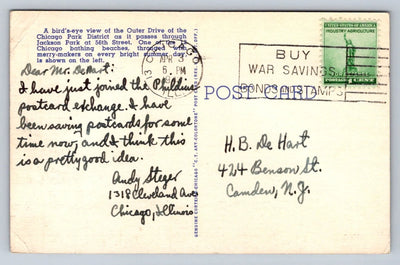 A bird's-eye view of the Outer Drive of the
Chicago Park District as it passes through
Jackson Park at 56th Street. One of the
Chicago bathing beaches, thronged with
merry-makers on every bright summer day is
shown on the left.
Dear Mr. DeHart:
I have just joined the
postcard exchange. I have
been saving postcards for some
time now, and I think this
is a pretty good idea.
Andy Steger
1318 Cleveland Ave
Chicago, Illinois
CHICAGO
APR 3
6 PM
BUY
WAR SAVINGS
BONDS AND STAMPS
UNITED STATES OF AMERICA
INDUSTRY AGRICULTURE
POST CARD
H.B. De Hart
424 Benson St.
Camden, N.J.